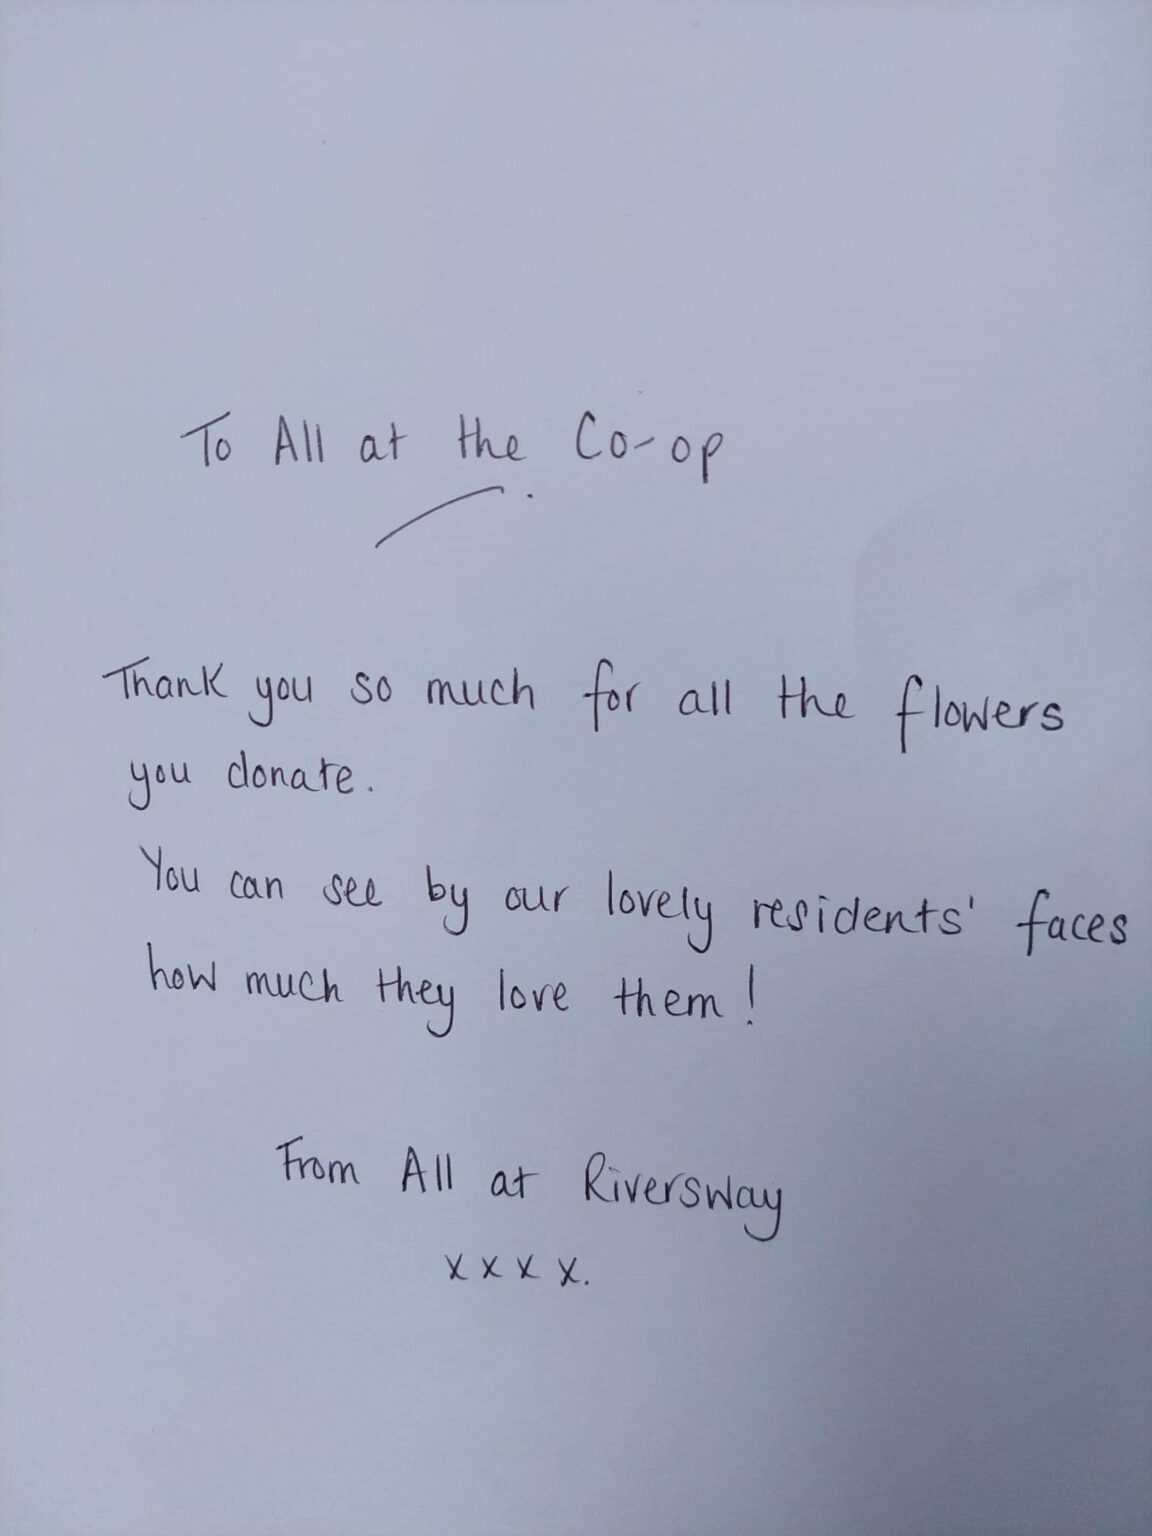 To All at the Co-op
Thank you so much for all the flowers
you donate.
You can see by our lovely residents' faces
how much they love them!
From All at Riversway
x x x x.